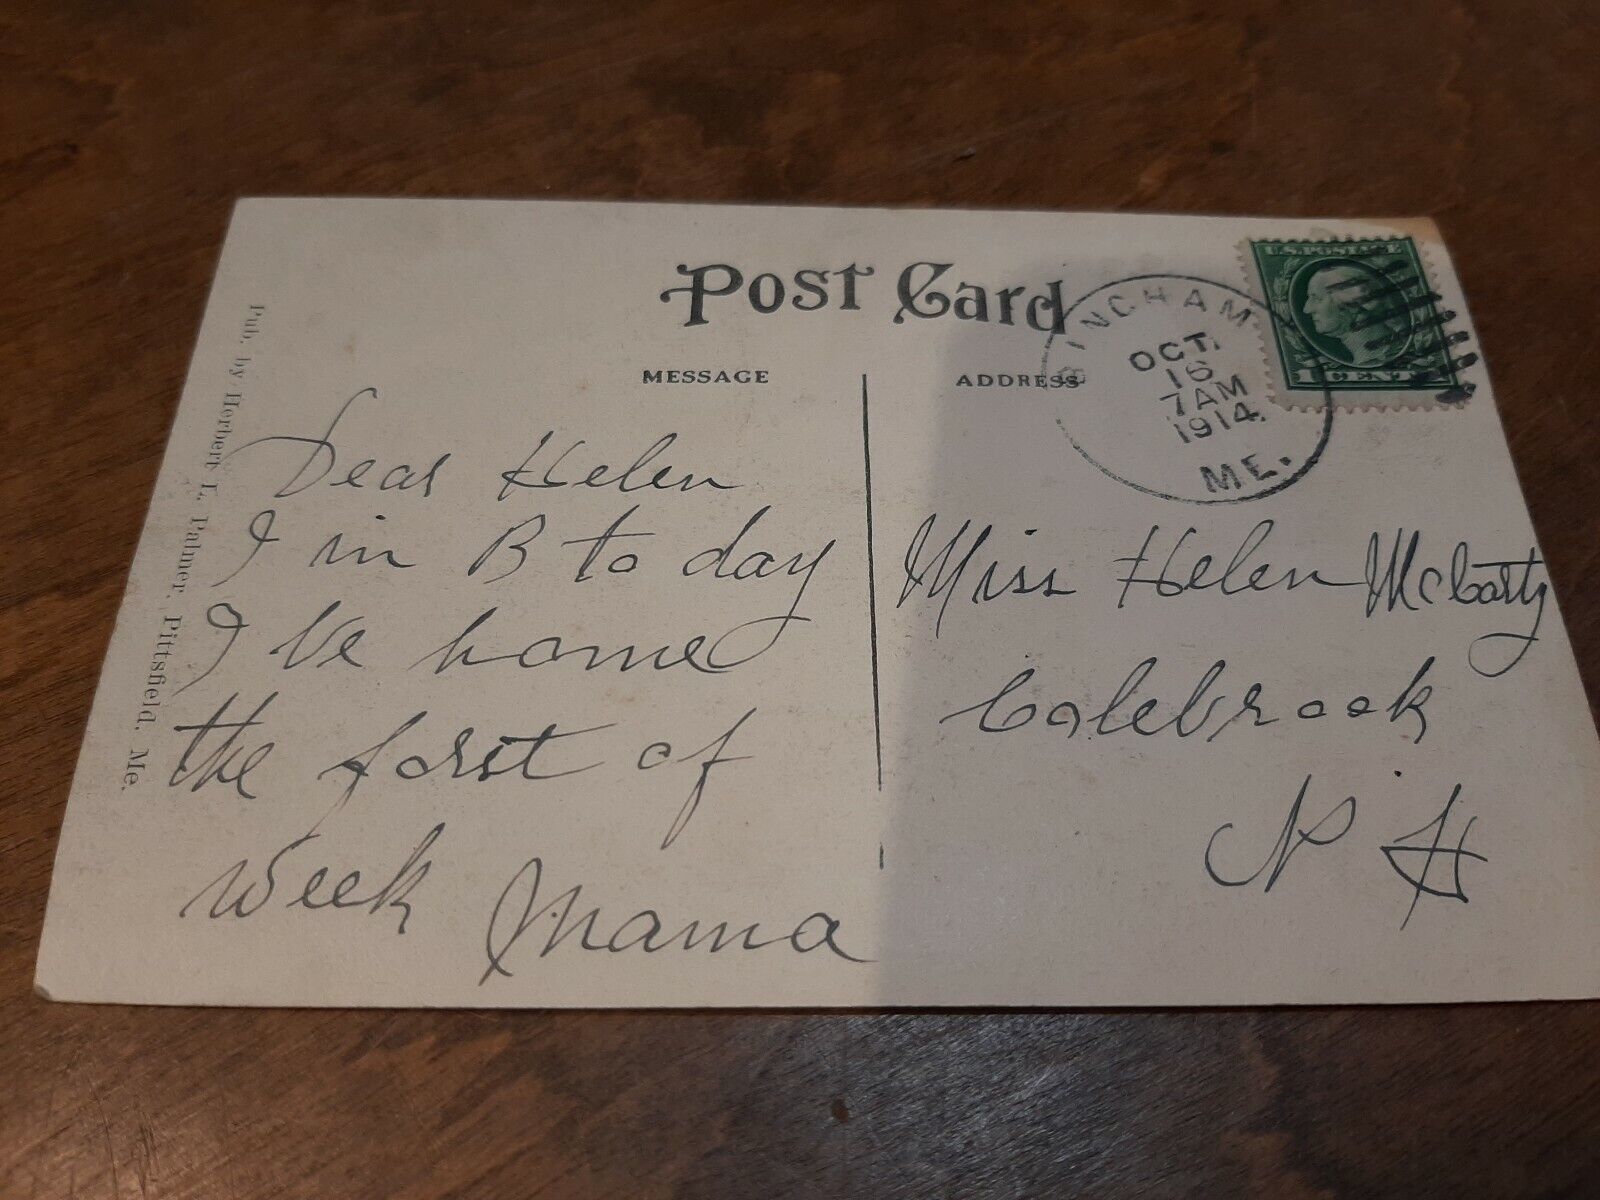 Post Card
MESSAGE
ADDRESS
BINGHAM
OCT.
16
7 AM
1914.
ME.
U.S. POSTAGE
1 CENT
Dear Helen
I in B to day
I be home
the forst of
week Mama
Miss Helen McCarty
Colebrook
N H
Pub. by Herbert L. Palmer, Pittsfield, Me.